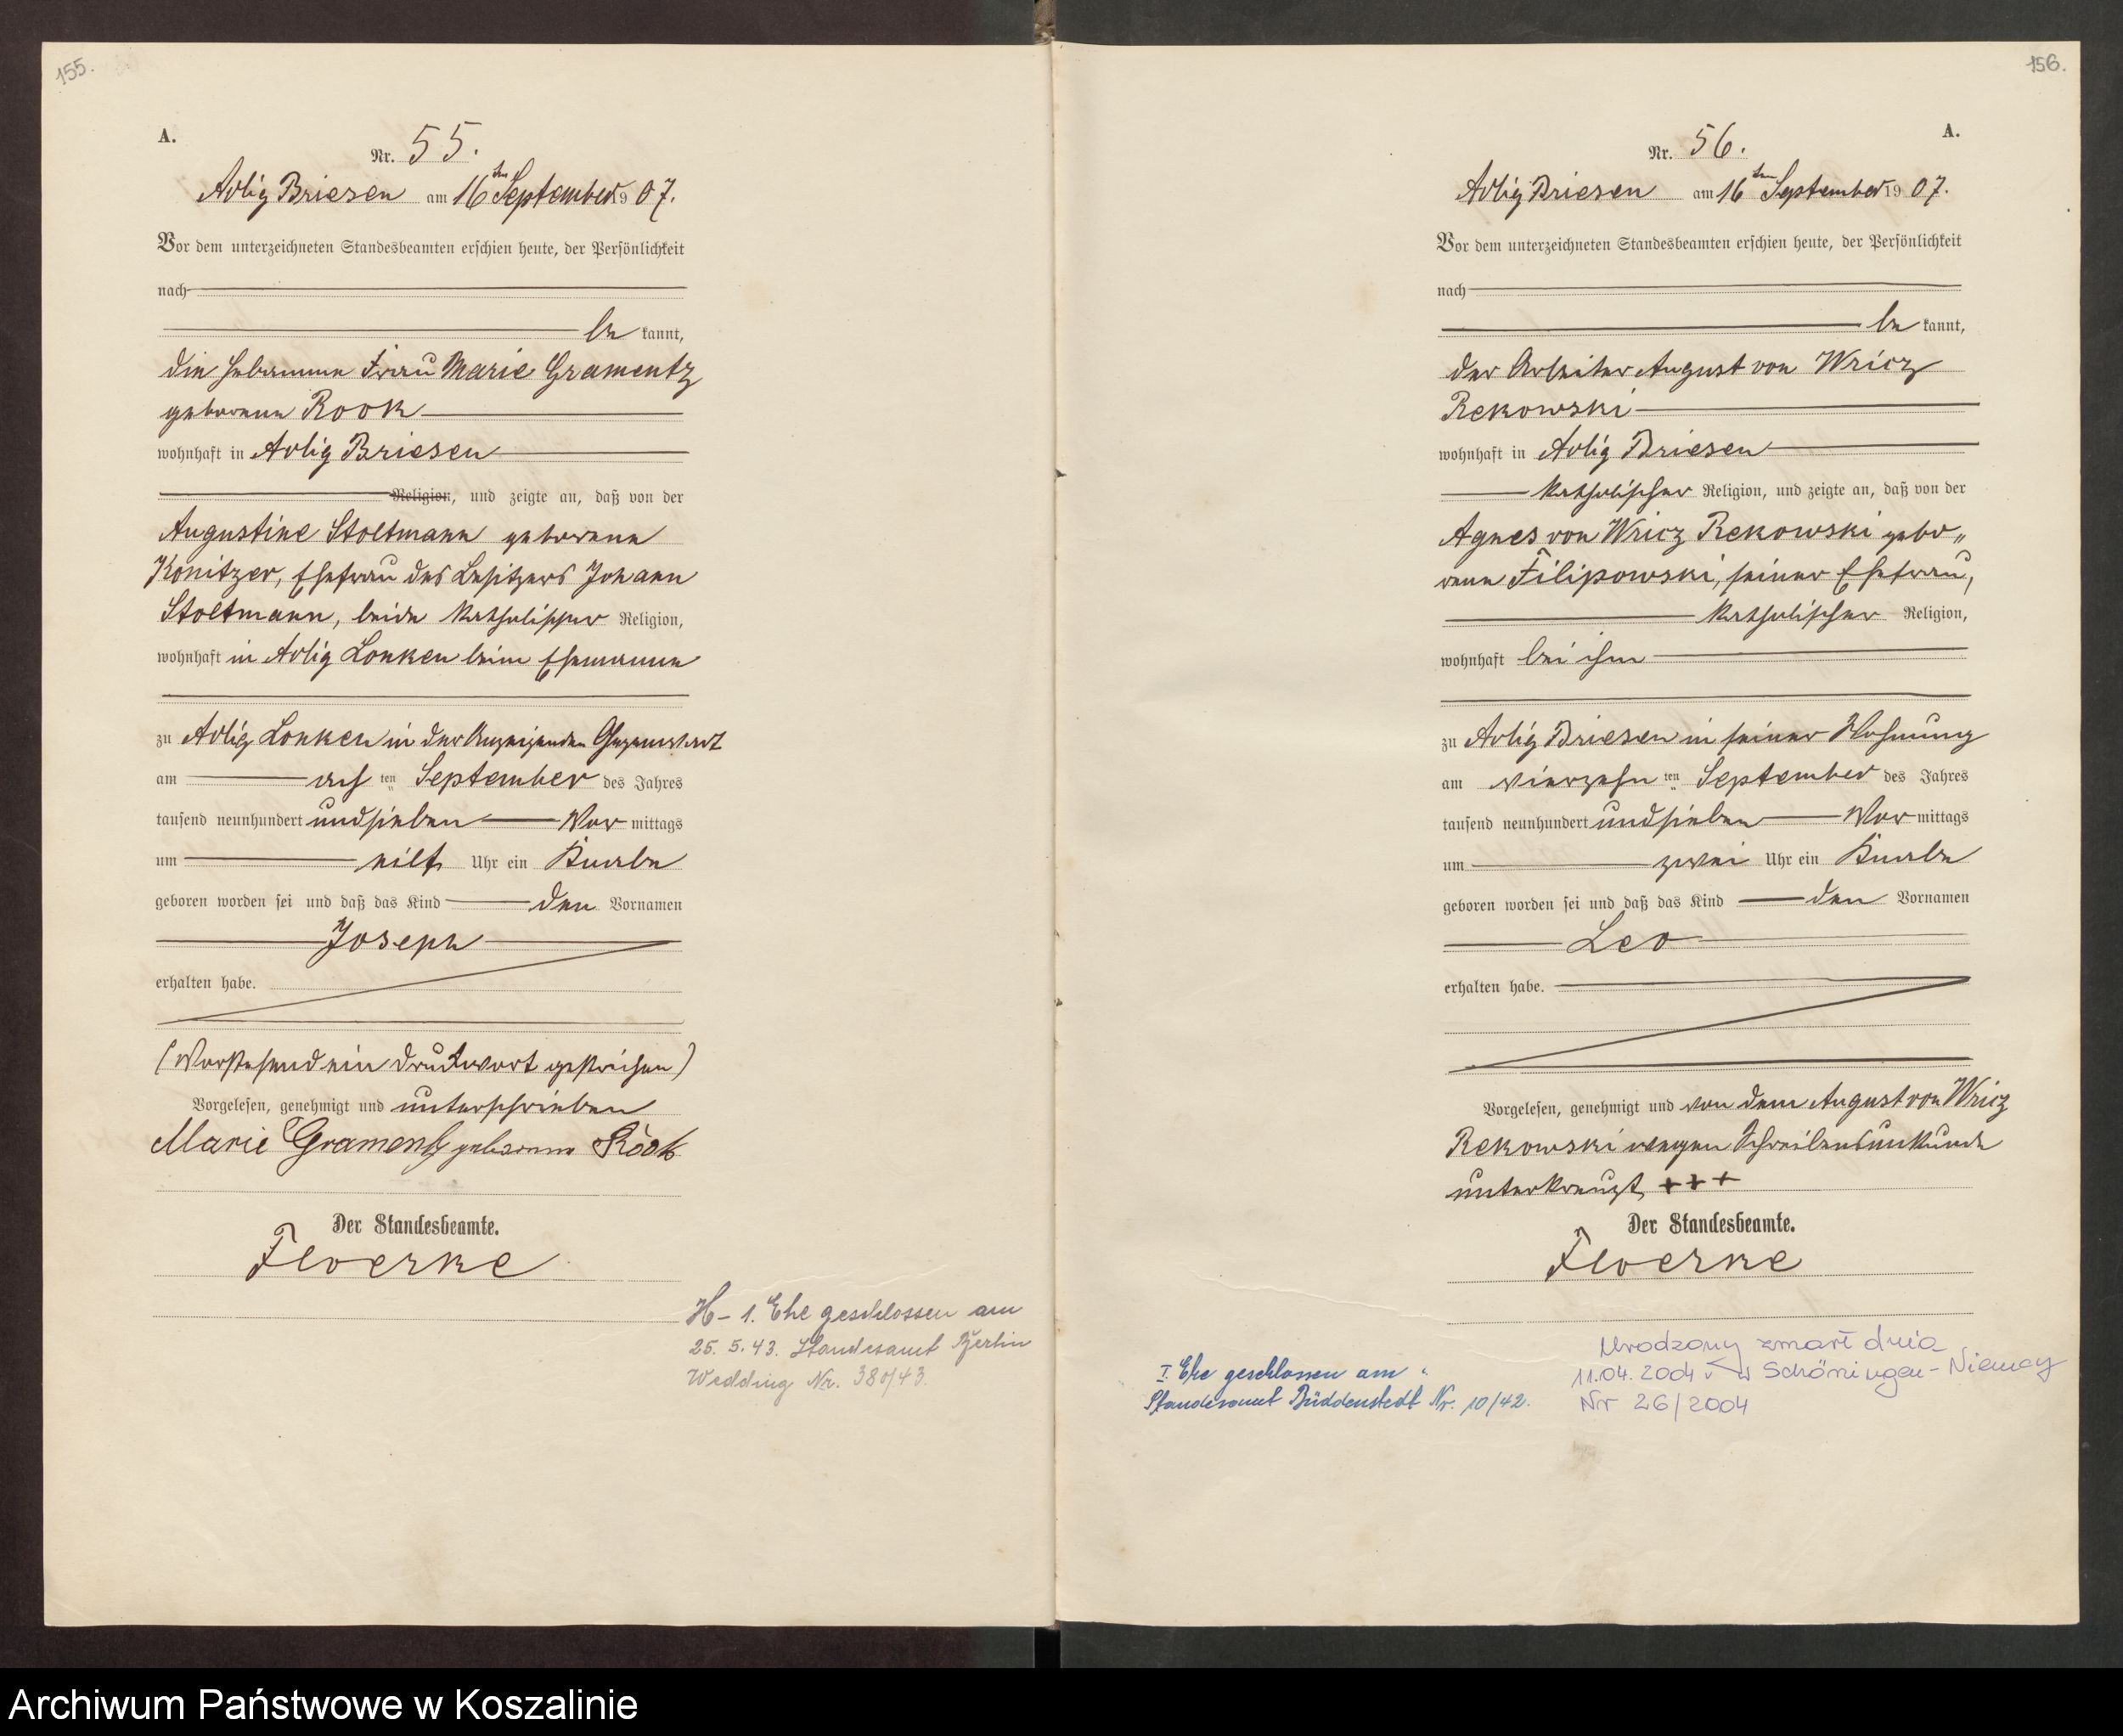 155.
A.
Nr. 55.
Adlig Briesen am 16ten September 1907.
Vor dem unterzeichneten Standesbeamten erschien heute, der Persönlichkeit
nach
be kannt,
die Hebamme Frau Marie Gramentz
geborene Rook
wohnhaft in Adlig Briesen
Religion, und zeigte an, daß von der
Augustine Stoltmann geborene
Konitzer, Ehefrau des Besitzers Johann
Stoltmann, beide katholischer Religion,
wohnhaft in Adlig Lonken beim Ehemanne
zu Adlig Lonken in der Anzeigenden Gegenwart
am acht ten September des Jahres
tausend neunhundert und sieben Vor mittags
um elf Uhr ein Knabe
geboren worden sei und daß das Kind den Vornamen
Joseph
erhalten habe.
(Vorstehend ein Druckwort gestrichen)
Vorgelesen, genehmigt und unterschrieben
Marie Gramentz geborene Rook
Der Standesbeamte.
Floerke
H – 1. Ehe geschlossen am
25. 5. 43. Standesamt Berlin
Wedding Nr. 380/43.
156.
A.
Nr. 56.
Adlig Briesen am 16ten September 1907.
Vor dem unterzeichneten Standesbeamten erschien heute, der Persönlichkeit
nach
be kannt,
der Arbeiter August von Wricz
Rekowski
wohnhaft in Adlig Briesen
katholischer Religion, und zeigte an, daß von der
Agnes von Wricz Rekowski gebo„
rene Filipowski, seiner Ehefrau,
katholischer Religion,
wohnhaft bei ihm
zu Adlig Briesen in seiner Wohnung
am vierzehn ten September des Jahres
tausend neunhundert und sieben Vor mittags
um zwei Uhr ein Knabe
geboren worden sei und daß das Kind den Vornamen
Leo
erhalten habe.
Vorgelesen, genehmigt und von dem August von Wricz
Rekowski wegen Schreibensunkunde
unterkreuzt +++
Der Standesbeamte.
Floerke
I. Ehe geschlossen am
Standesamt Büddenstedt Nr. 10/42.
Urodzony zmarł dnia
11.04.2004 r w Schöningen - Niemcy
Nr 26/2004
Archiwum Państwowe w Koszalinie